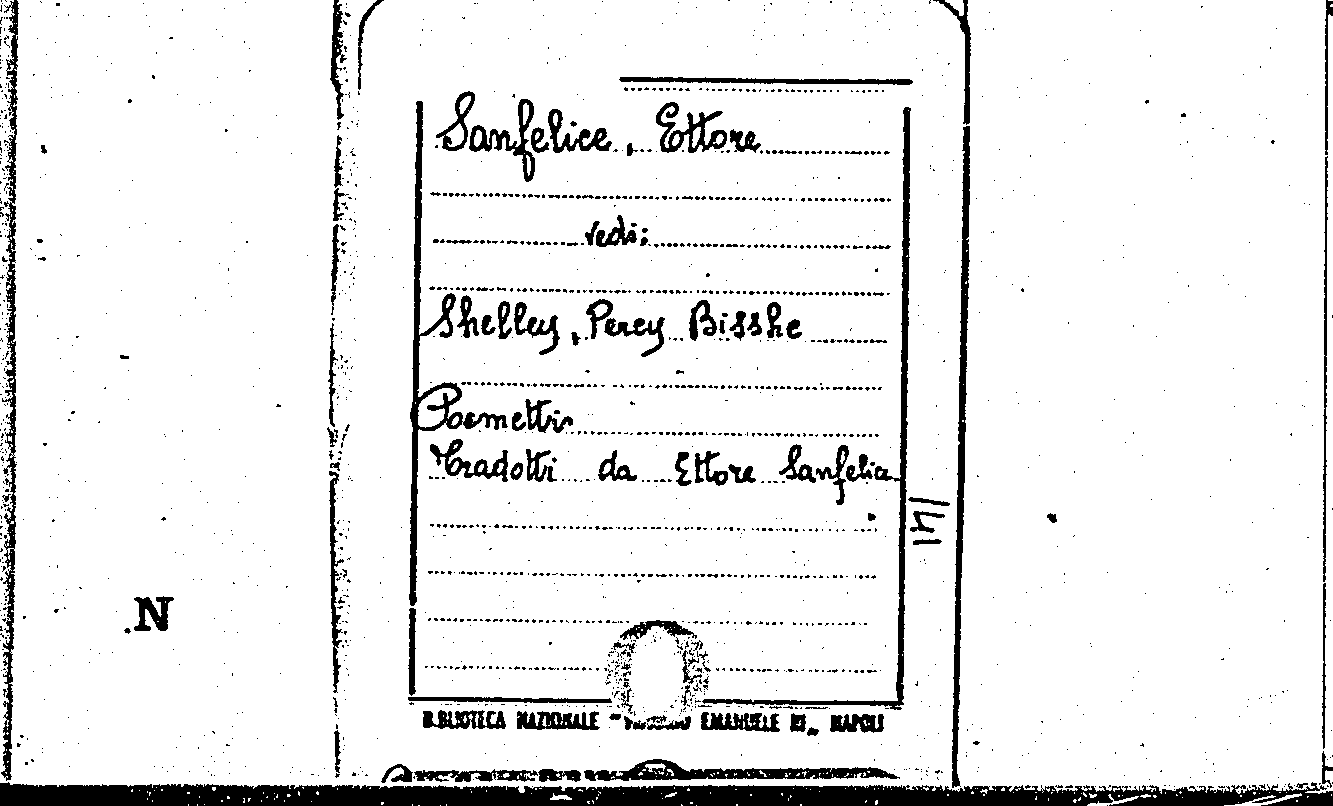 Sanfelice, Ettore
vedi:
Shelley, Percy Bisshe
Poemetti
Tradotti da Ettore Sanfelice
141
N
BIBLIOTECA NAZIONALE "VITTORIO EMANUELE III" NAPOLI